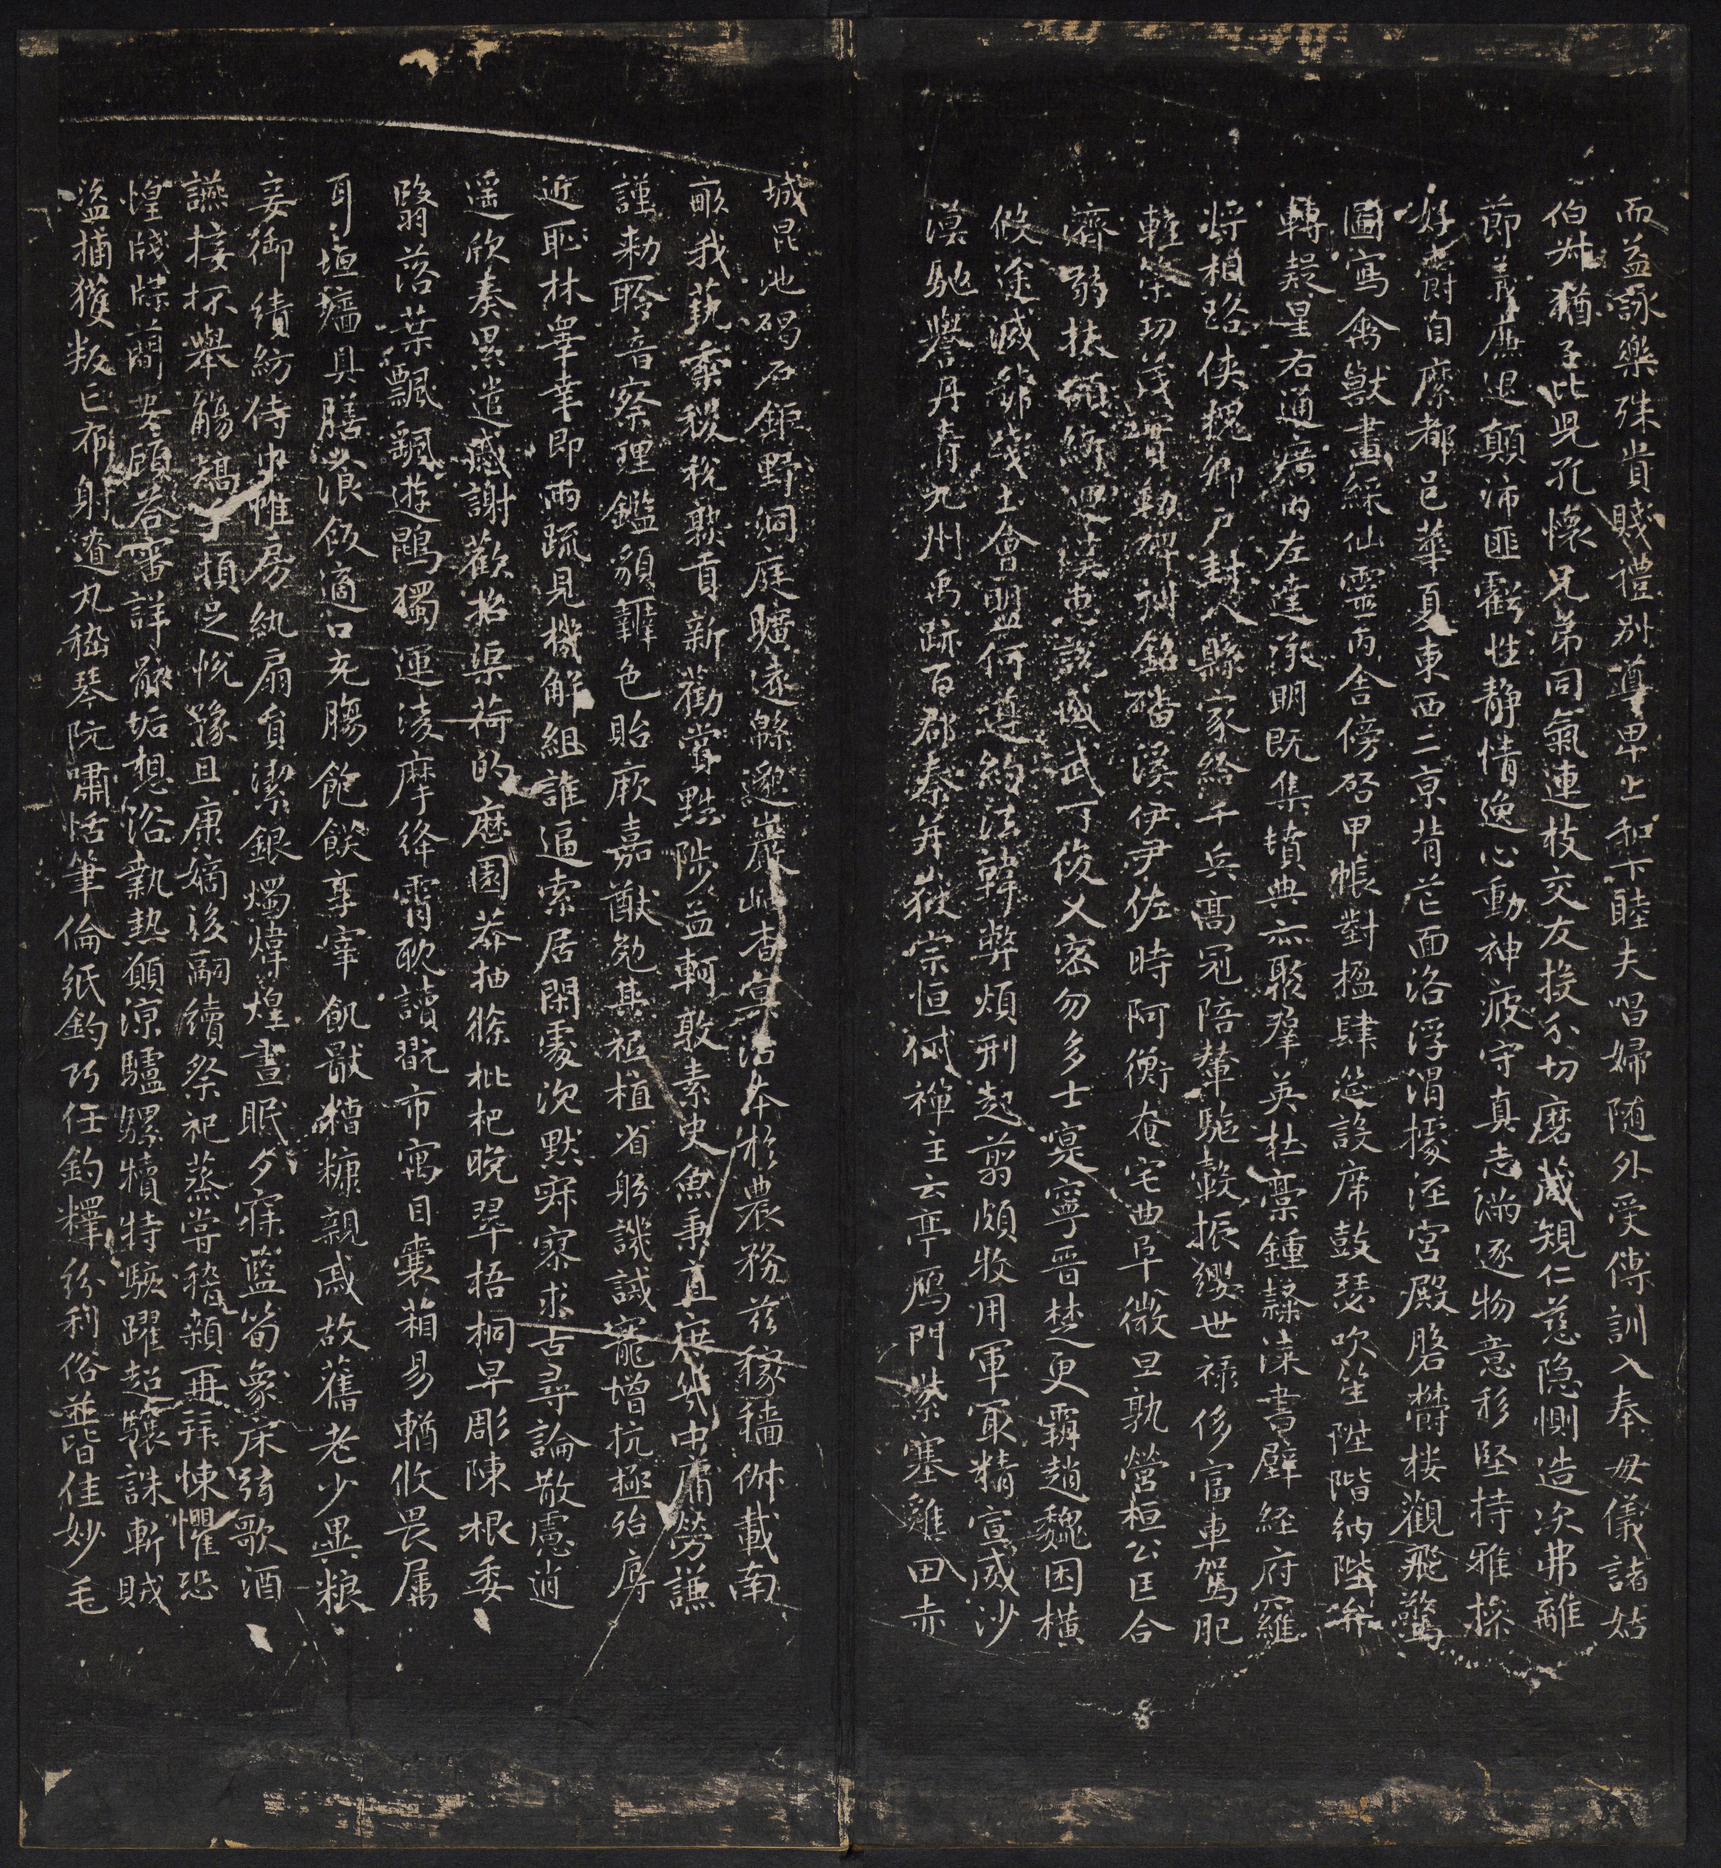 而益詠樂殊貴賤禮別尊卑上和下睦夫唱婦随外受傅訓入奉母儀諸姑
伯叔猶子比兒孔懷兄弟同氣連枝交友投分切磨箴規仁慈隐惻造次弗離
節義廉退顛沛匪虧性静情逸心動神疲守真志滿逐物意移堅持雅操
好爵自縻都邑華夏東西二京背芒面洛浮渭據涇宮殿磐欝樓觀飛驚
圖寫禽獸畫綵仙靈丙舍傍啓甲帳對楹肆筵設席鼓瑟吹笙陞階納陛弁
轉疑星右通廣内左達承明既集墳典亦聚群英杜稾鍾隸漆書壁経府羅
将相路俠槐卿户封八縣家給千兵髙冠陪輦駈轂振纓世禄侈富車駕肥
輕策功茂實勒碑刻銘磻溪伊尹佐時阿衡奄宅曲阜微旦孰營桓公匡合
濟弱扶傾綺迴漢惠說感武丁俊乂密勿多士寔寧晋楚更霸趙魏困橫
假途滅虢踐土會盟何遵約法韓弊煩刑起翦頗牧用軍最精宣威沙
漠馳譽丹青九州禹跡百郡秦并嶽宗恒岱禪主云亭鴈門紫塞雞田赤
城昆池碣石鉅野洞庭曠遠緜邈巖岫杳冥治本於農務茲稼穡俶載南
畝我藝黍稷稅熟貢新勸賞黜陟孟軻敦素史魚秉直庶幾中庸勞謙
謹勑聆音察理鑑貌辯色貽厥嘉猷勉其祗植省躬譏誡寵增抗極殆辱
近恥林睾幸即兩疏見機解組誰逼索居閑處沉默寂寥求古尋論散慮逍
遥欣奏累遣慼謝歡招渠荷的歷園莽抽條枇杷晚翠梧桐早彫陳根委
翳落葉飄颻遊鵾獨運淩摩絳霄耽讀翫市寓目囊箱易輶攸畏属
耳垣墻具膳飡飯適口充膓飽飫享宰飢猒糟糠親戚故舊老少異粮
妾御績紡侍巾帷房紈扇員潔銀燭煒煌晝眠夕寐藍筍象床弦歌酒
讌接杯舉觴矯手頓足悅豫且康嫡後嗣續祭祀蒸嘗稽顙再拜悚懼恐
惶牋牒簡要顧荅審詳骸垢想浴執熱願涼驢騾犢特駭躍超驤誅斬賊
盜捕獲叛亡布射遼丸嵇琴阮嘯恬筆倫紙鈞巧任釣釋紛利俗並皆佳妙毛